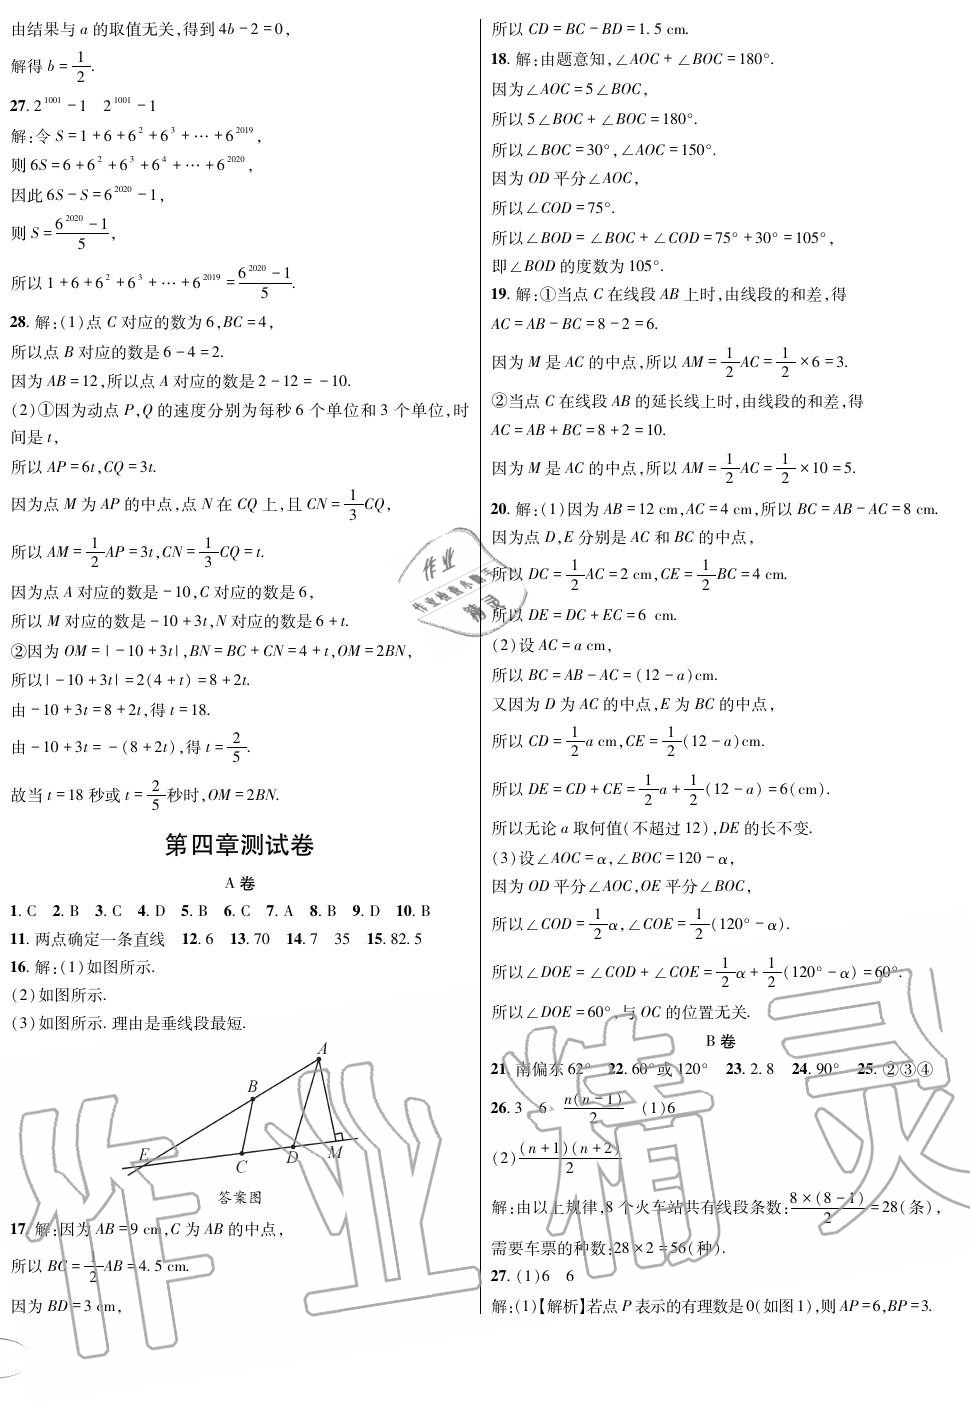 由结果与 a 的取值无关,得到 4b－2＝0,
解得 b＝1/2.
27. 2^1001－1　2^1001－1
解:令 S＝1＋6＋6^2＋6^3＋…＋6^2019,
则 6S＝6＋6^2＋6^3＋6^4＋…＋6^2020,
因此 6S－S＝6^2020－1,
则 S＝(6^2020－1)/5,
所以 1＋6＋6^2＋6^3＋…＋6^2019＝(6^2020－1)/5.
28. 解:(1)点 C 对应的数为 6,BC＝4,
所以点 B 对应的数是 6－4＝2.
因为 AB＝12,所以点 A 对应的数是 2－12＝－10.
(2)①因为动点 P,Q 的速度分别为每秒 6 个单位和 3 个单位,时
间是 t,
所以 AP＝6t,CQ＝3t.
因为点 M 为 AP 的中点,点 N 在 CQ 上,且 CN＝1/3CQ,
所以 AM＝1/2AP＝3t,CN＝1/3CQ＝t.
因为点 A 对应的数是－10,C 对应的数是 6,
所以 M 对应的数是－10＋3t,N 对应的数是 6＋t.
②因为 OM＝|－10＋3t|,BN＝BC＋CN＝4＋t,OM＝2BN,
所以|－10＋3t|＝2(4＋t)＝8＋2t.
由－10＋3t＝8＋2t,得 t＝18.
由－10＋3t＝－(8＋2t),得 t＝2/5.
故当 t＝18 秒或 t＝2/5秒时,OM＝2BN.
第四章测试卷
A 卷
1. C　2. B　3. C　4. D　5. B　6. C　7. A　8. B　9. D　10. B
11. 两点确定一条直线　12. 6　13. 70　14. 7　35　15. 82. 5
16. 解:(1)如图所示.
(2)如图所示.
(3)如图所示. 理由是垂线段最短.
A
B
E
C
D
M
答案图
17. 解:因为 AB＝9 cm,C 为 AB 的中点,
所以 BC＝1/2AB＝4. 5 cm.
因为 BD＝3 cm,
所以 CD＝BC－BD＝1. 5 cm.
18. 解:由题意知,∠AOC＋∠BOC＝180°.
因为∠AOC＝5∠BOC,
所以 5∠BOC＋∠BOC＝180°.
所以∠BOC＝30°,∠AOC＝150°.
因为 OD 平分∠AOC,
所以∠COD＝75°.
所以∠BOD＝∠BOC＋∠COD＝75°＋30°＝105°,
即∠BOD 的度数为 105°.
19. 解:①当点 C 在线段 AB 上时,由线段的和差,得
AC＝AB－BC＝8－2＝6.
因为 M 是 AC 的中点,所以 AM＝1/2AC＝1/2×6＝3.
②当点 C 在线段 AB 的延长线上时,由线段的和差,得
AC＝AB＋BC＝8＋2＝10.
因为 M 是 AC 的中点,所以 AM＝1/2AC＝1/2×10＝5.
20. 解:(1)因为 AB＝12 cm,AC＝4 cm,所以 BC＝AB－AC＝8 cm.
因为点 D,E 分别是 AC 和 BC 的中点,
所以 DC＝1/2AC＝2 cm,CE＝1/2BC＝4 cm.
所以 DE＝DC＋EC＝6 cm.
(2)设 AC＝a cm,
所以 BC＝AB－AC＝(12－a)cm.
又因为 D 为 AC 的中点,E 为 BC 的中点,
所以 CD＝1/2a cm,CE＝1/2(12－a)cm.
所以 DE＝CD＋CE＝1/2a＋1/2(12－a)＝6(cm).
所以无论 a 取何值(不超过 12),DE 的长不变.
(3)设∠AOC＝α,∠BOC＝120－α,
因为 OD 平分∠AOC,OE 平分∠BOC,
所以∠COD＝1/2α,∠COE＝1/2(120°－α).
所以∠DOE＝∠COD＋∠COE＝1/2α＋1/2(120°－α)＝60°.
所以∠DOE＝60°,与 OC 的位置无关.
B 卷
21. 南偏东 62°　22. 60°或 120°　23. 2. 8　24. 90°　25. ②③④
26. 3　6　n(n－1)/2　(1)6
(2)(n＋1)(n＋2)/2
解:由以上规律,8 个火车站共有线段条数:8×(8－1)/2＝28(条),
需要车票的种数:28×2＝56(种).
27. (1)6　6
解:(1)【解析】若点 P 表示的有理数是 0(如图 1),则 AP＝6,BP＝3.
作业
作业检查小助手
精灵
作业精灵